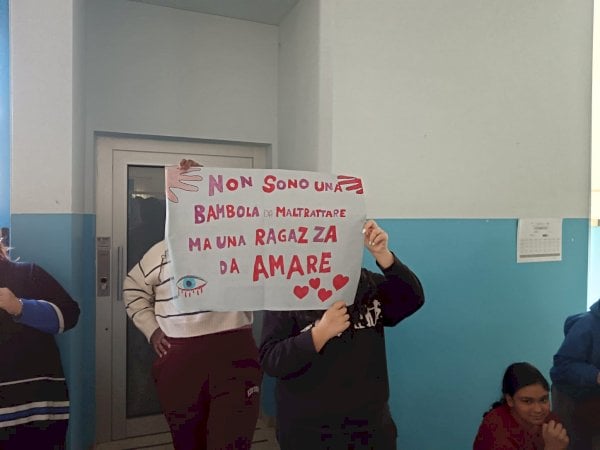 NON SONO UNA
BAMBOLA DA MALTRATTARE
MA UNA RAGAZZA
DA AMARE